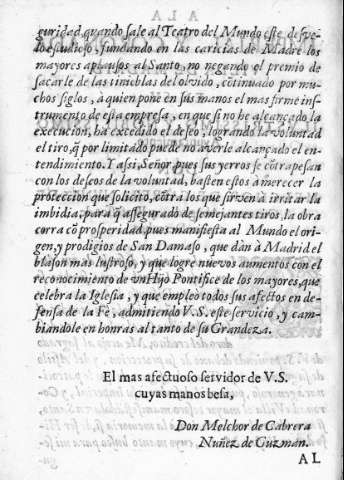 guridad quando sale al Teatro del Mundo este desve-
lo estudioso, fundando en las caricias de Madre los
mayores aplausos al Santo, no negando el premio de
sacarle de las tinieblas del olvido, cõtinuado por mu-
chos siglos, à quien pone en sus manos el mas firme ins-
trumento desta empresa, en que si no he alcançado la
execucion, ha excedido el deseo, logrando la voluntad
el tiro, q̃ por limitado puede no averle alcançado el en-
tendimiento. Y assi, Señor, pues sus yerros se cõtrapesan
con los deseos de la voluntad, basten estos à merecer la
proteccion que solicito, cõtra los que sirven à irritar la
imbidia, para q̃ assegurado de semejantes tiros, la obra
corra cõ prosperidad, pues manifiesta al Mundo el ori-
gen, y prodigios de San Damaso, que dàn à Madrid el
blason mas lustroso, y que logre nuevos aumentos con el
reconocimiento de vn Hijo Pontifice de los mayores, que
celebra la Iglesia, y que empleò todos sus afectos en de-
fensa de la Fè, admitiendo V.S. este servicio, y cam-
biandole en honras al tanto de su Grandeza.
El mas afectuoso servidor de V.S.
cuyas manos besa,
Don Melchor de Cabrera
Nuñez de Guzman.
AL